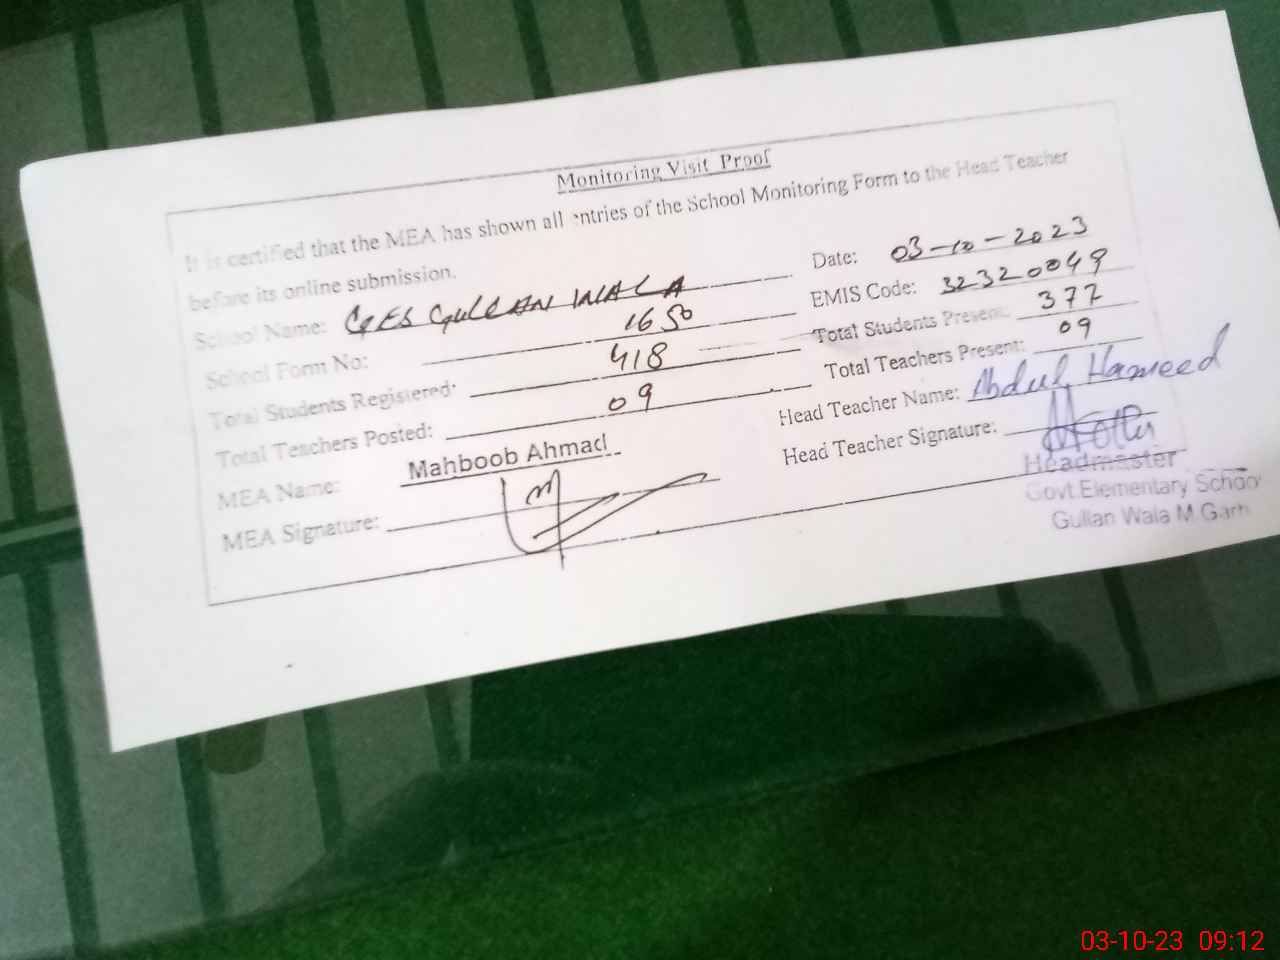 Monitoring Visit Proof
It is certified that the MEA has shown all entries of the School Monitoring Form to the Head Teacher
before its online submission.
Date: 03-10-2023
School Name: GES GULLAN WALA
EMIS Code: 32320049
School Form No: 1650
Total Students Present: 377
Total Students Registered: 418
Total Teachers Present: 09
Total Teachers Posted: 09
Head Teacher Name: Abdul Hameed
MEA Name: Mahboob Ahmad
Head Teacher Signature:
MEA Signature:
Headmaster
Govt.Elementary School
Gullan Wala M.Garh
03-10-23 09:12